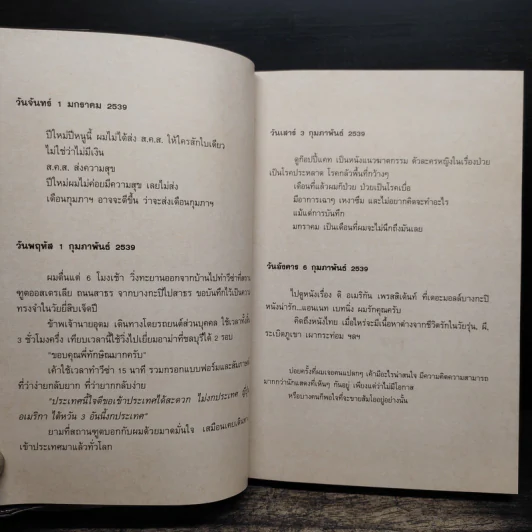 วันจันทร์ 1 มกราคม 2539
ปีใหม่ปีหนูนี้ ผมไม่ได้ส่ง ส.ค.ส. ให้ใครสักใบเดียว
ไม่ใช่ว่าไม่มีเงิน
ส.ค.ส. ส่งความสุข
ปีใหม่ผมไม่ค่อยมีความสุข เลยไม่ส่ง
เดือนกุมภาฯ อาจจะดีขึ้น ว่าจะส่งเดือนกุมภาฯ
วันพฤหัส 1 กุมภาพันธ์ 2539
ผมตื่นแต่ 6 โมงเช้า วิ่งทะยานออกจากบ้านไปทำวีซ่าที่สถาน
ทูตออสเตรเลีย ถนนสาธร จากบางกะปิไปสาธร ขอบันทึกไว้เป็นความ
ทรงจำในวัยยี่สิบเจ็ดปี
ข้าพเจ้านายอุดม เดินทางโดยรถยนต์ส่วนบุคคล ใช้เวลาทั้งสิ้น
3 ชั่วโมงครึ่ง เทียบเวลานี้ใช้วิ่งไปเยี่ยมอาม่าที่ชลบุรีได้ 2 รอบ
"ขอบคุณพี่ทักษิณมากครับ"
ค้าใช้เวลาทำวีซ่า 15 นาที รวมกรอกแบบฟอร์มและสัมภาษณ์
ที่ว่าง่ายกลับยาก ที่ว่ายากกลับง่าย
"ประเทศนี้ใจดีขอเข้าประเทศได้สะดวก ไม่งกประเทศ
อเมริกา ไต้หวัน 3 อันนี้งกประเทศ"
ยามที่สถานทูตบอกกับผมด้วยมาดมั่นใจ เสมือนเคยเดินทาง
เข้าประเทศมาแล้วทั่วโลก
วันเสาร์ 3 กุมภาพันธ์ 2539
ดูก๊อปปี้แคท เป็นหนังแนวฆาตกรรม ตัวละครหญิงในเรื่องป่วย
เป็นโรคประหลาด โรคกลัวพื้นที่กว้างๆ
เดือนที่แล้วผมก็ป่วย ป่วยเป็นโรคเบื่อ
มีอาการเฉาๆ เหงาซึม และไม่อยากคิดจะทำอะไร
แม้แต่การบันทึก
มกราคม เป็นเดือนที่ผมจะไม่นึกถึงมันเลย
วันอังคาร 6 กุมภาพันธ์ 2539
ไปดูหนังเรื่อง ดิ อเมริกัน เพรสสิเด้นท์ ที่เดอะมอลล์บางกะปิ
หนังน่ารัก...แอนเนท เบทนิ่ง ผมรักคุณครับ
คิดถึงหนังไทย เมื่อไหร่จะมีเนื้อหาต่างจากชีวิตรักในวัยรุ่น, ผี,
ระเบิดภูเขา เผากระท่อม ฯลฯ
บ่อยครั้งที่ผมเจอคนแปลกๆ เค้ามีอะไรน่าสนใจ มีความคิดความสามารถ
มากกว่านักแสดงที่เห็นๆ กันอยู่ เพียงแต่ว่าไม่มีโอกาส
หรือบางคนก็พอใจที่จะขายส้มโออยู่อย่างนั้น